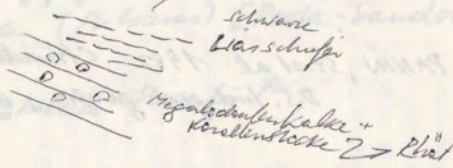 schwarze
Liasschiefer
Megalodontenkalke +
Korallenstöcke → Rhät